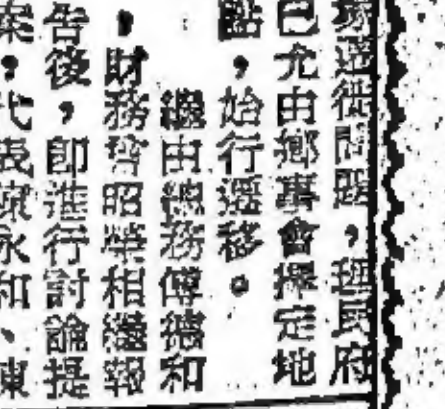 塚遷徙問題，理民府
已允由鄉事會擇定地
點，始行遷移。
繼由總務傅德和
，財務李昭榮相繼報
告後，即進行討論提
案，代表陳永和、陳